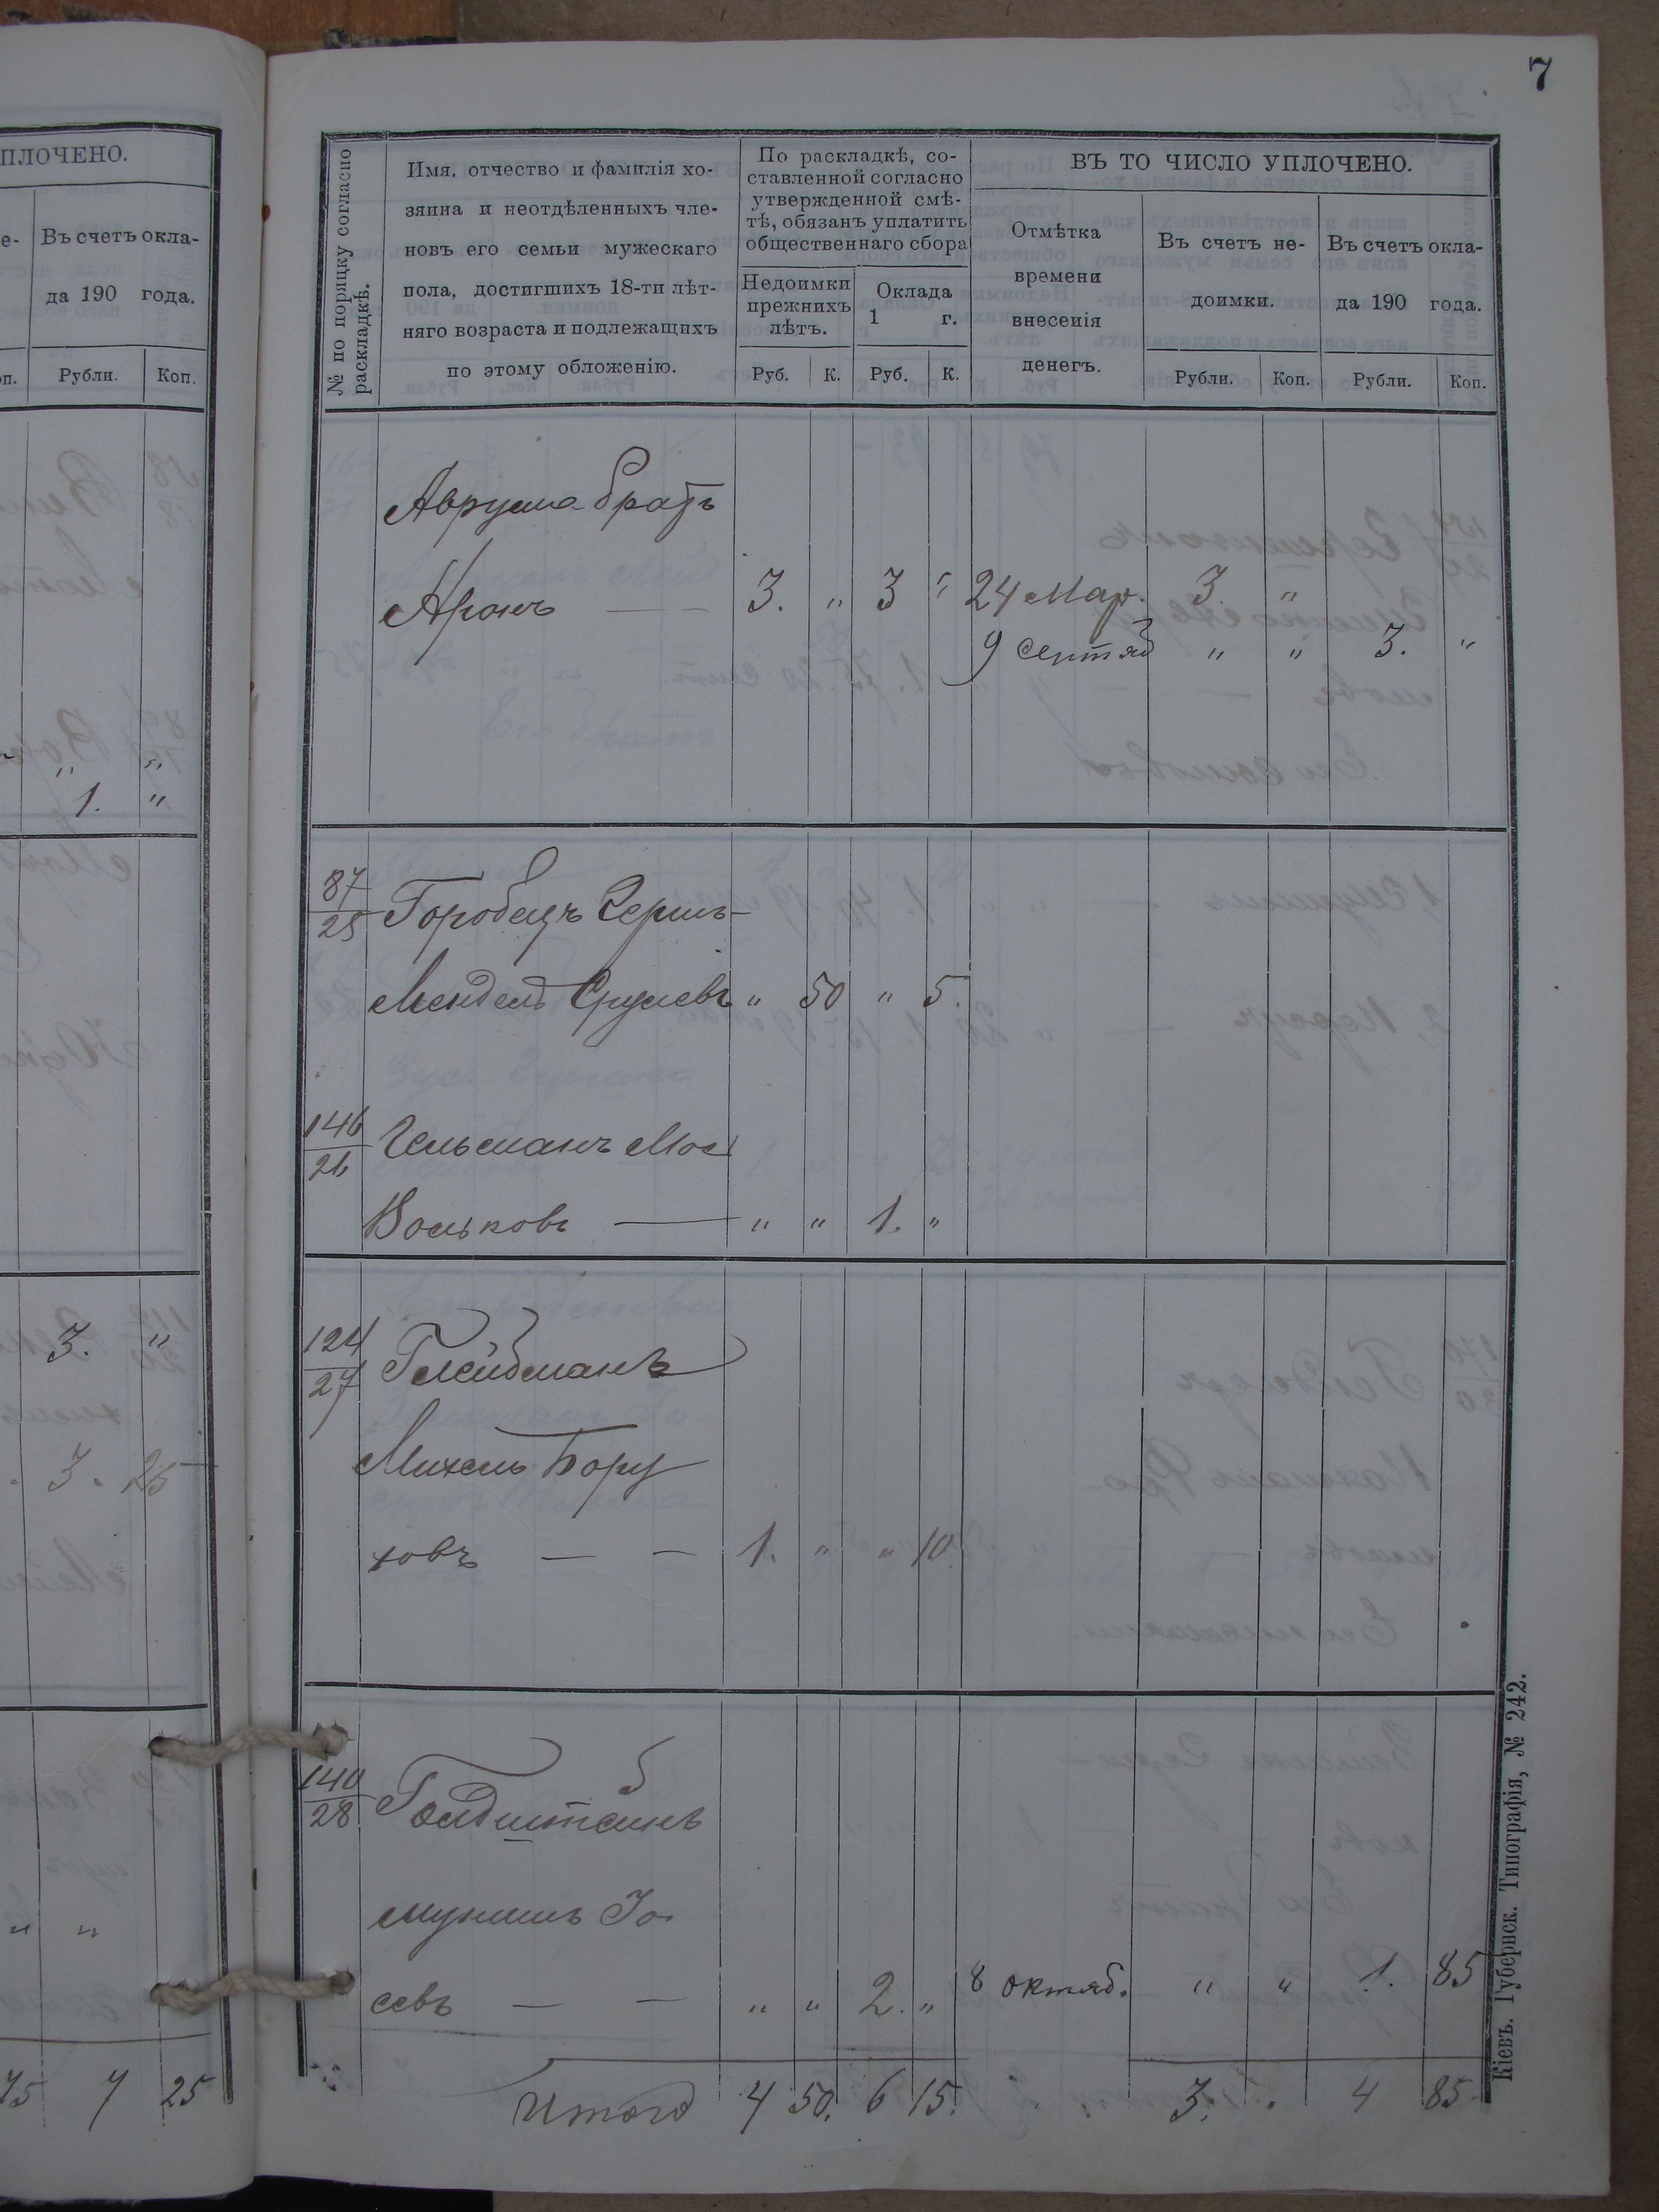 7
ПЛОЧЕНО.
Въ счетъ окла-
да 190 года.
Рубли. Коп.
„ „
1. „
3. „
3. 25
„ „
75 7 25
№ по порядку согласно
раскладкѣ.
Имя, отчество и фамилія хо-
зяина и неотдѣленныхъ чле-
новъ его семьи мужескаго
пола, достигшихъ 18-ти лѣт-
няго возраста и подлежащихъ
по этому обложенію.
По раскладкѣ, со-
ставленной согласно
утвержденной смѣ-
тѣ, обязанъ уплатить
общественнаго сбора
Недоимки
прежнихъ
лѣтъ.
Оклада
1 г.
Руб. К. Руб. К.
ВЪ ТО ЧИСЛО УПЛОЧЕНО.
Отмѣтка
времени
внесенія
денегъ.
Въ счетъ не-
доимки.
Въ счетъ окла-
да 190 года.
Рубли. Коп. Рубли. Коп.
Аврума братъ
Аронъ — — 3. „ 3 „ 24 Мар. 3. „
9 Сентяб „ „ 3. „
87/25 Горобецъ Гершъ-
Мендель Срулевъ „ 50 „ 5.
146/26 Гельманъ
Вольковъ — „ „ 1. „
124/27 Глейбманъ
Михель Бору
ховъ — — 1. „ „ 10.
140/28 Голдштейнъ
Іо-
севъ — — „ „ 2. „ 8 октяб. „ „ 1. 85
Итого 4 50. 6 15. 3. . 4 85
Кіевъ. Губернск. Типографія, № 242.